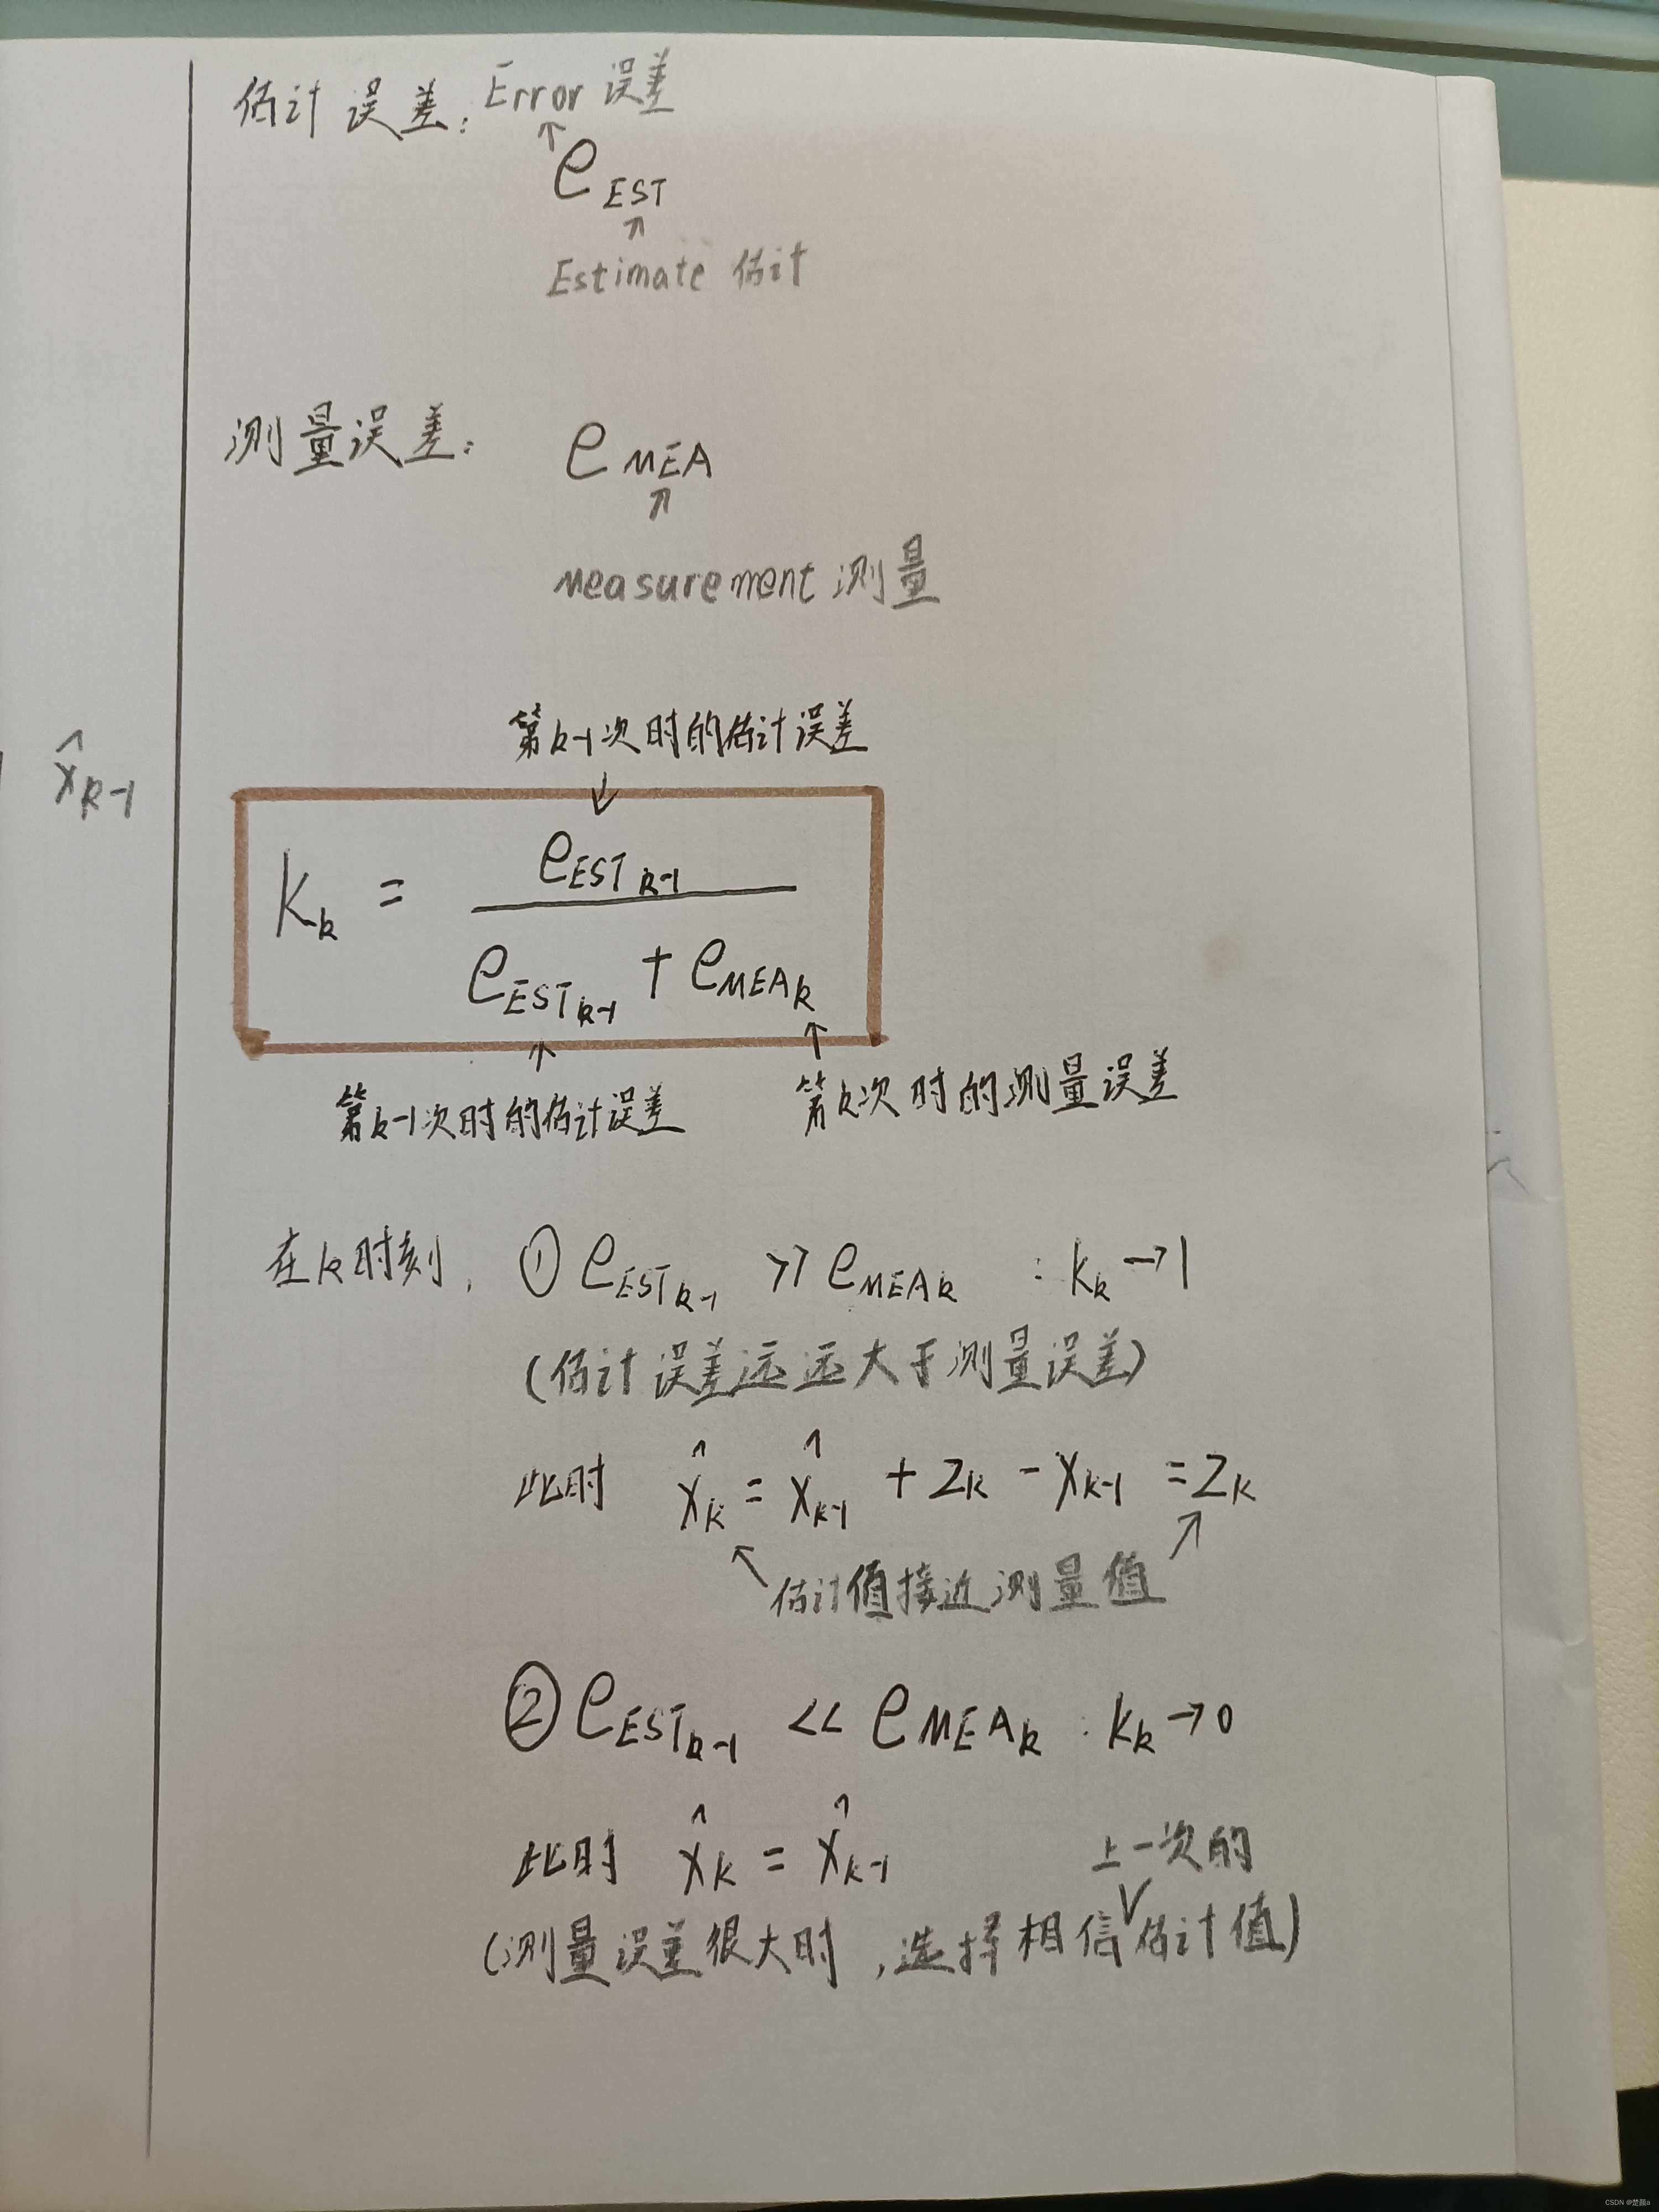 估计误差: Error 误差
↑
e_EST
↑
Estimate 估计
测量误差: e_MEA
↑
Measurement 测量
x̂_k-1
第k-1次时的估计误差
↓
K_k = e_EST_k-1 / (e_EST_k-1 + e_MEA_k)
↑ ↑
第k-1次时的估计误差 第k次时的测量误差
在k时刻, ① e_EST_k-1 >> e_MEA_k : K_k → 1
(估计误差远远大于测量误差)
此时 x̂_k = x̂_k-1 + Z_k - x_k-1 = Z_k
估计值接近测量值
② e_EST_k-1 << e_MEA_k : K_k → 0
此时 x̂_k = x̂_k-1
上一次的
(测量误差很大时,选择相信∨估计值)
CSDN @楚颜a